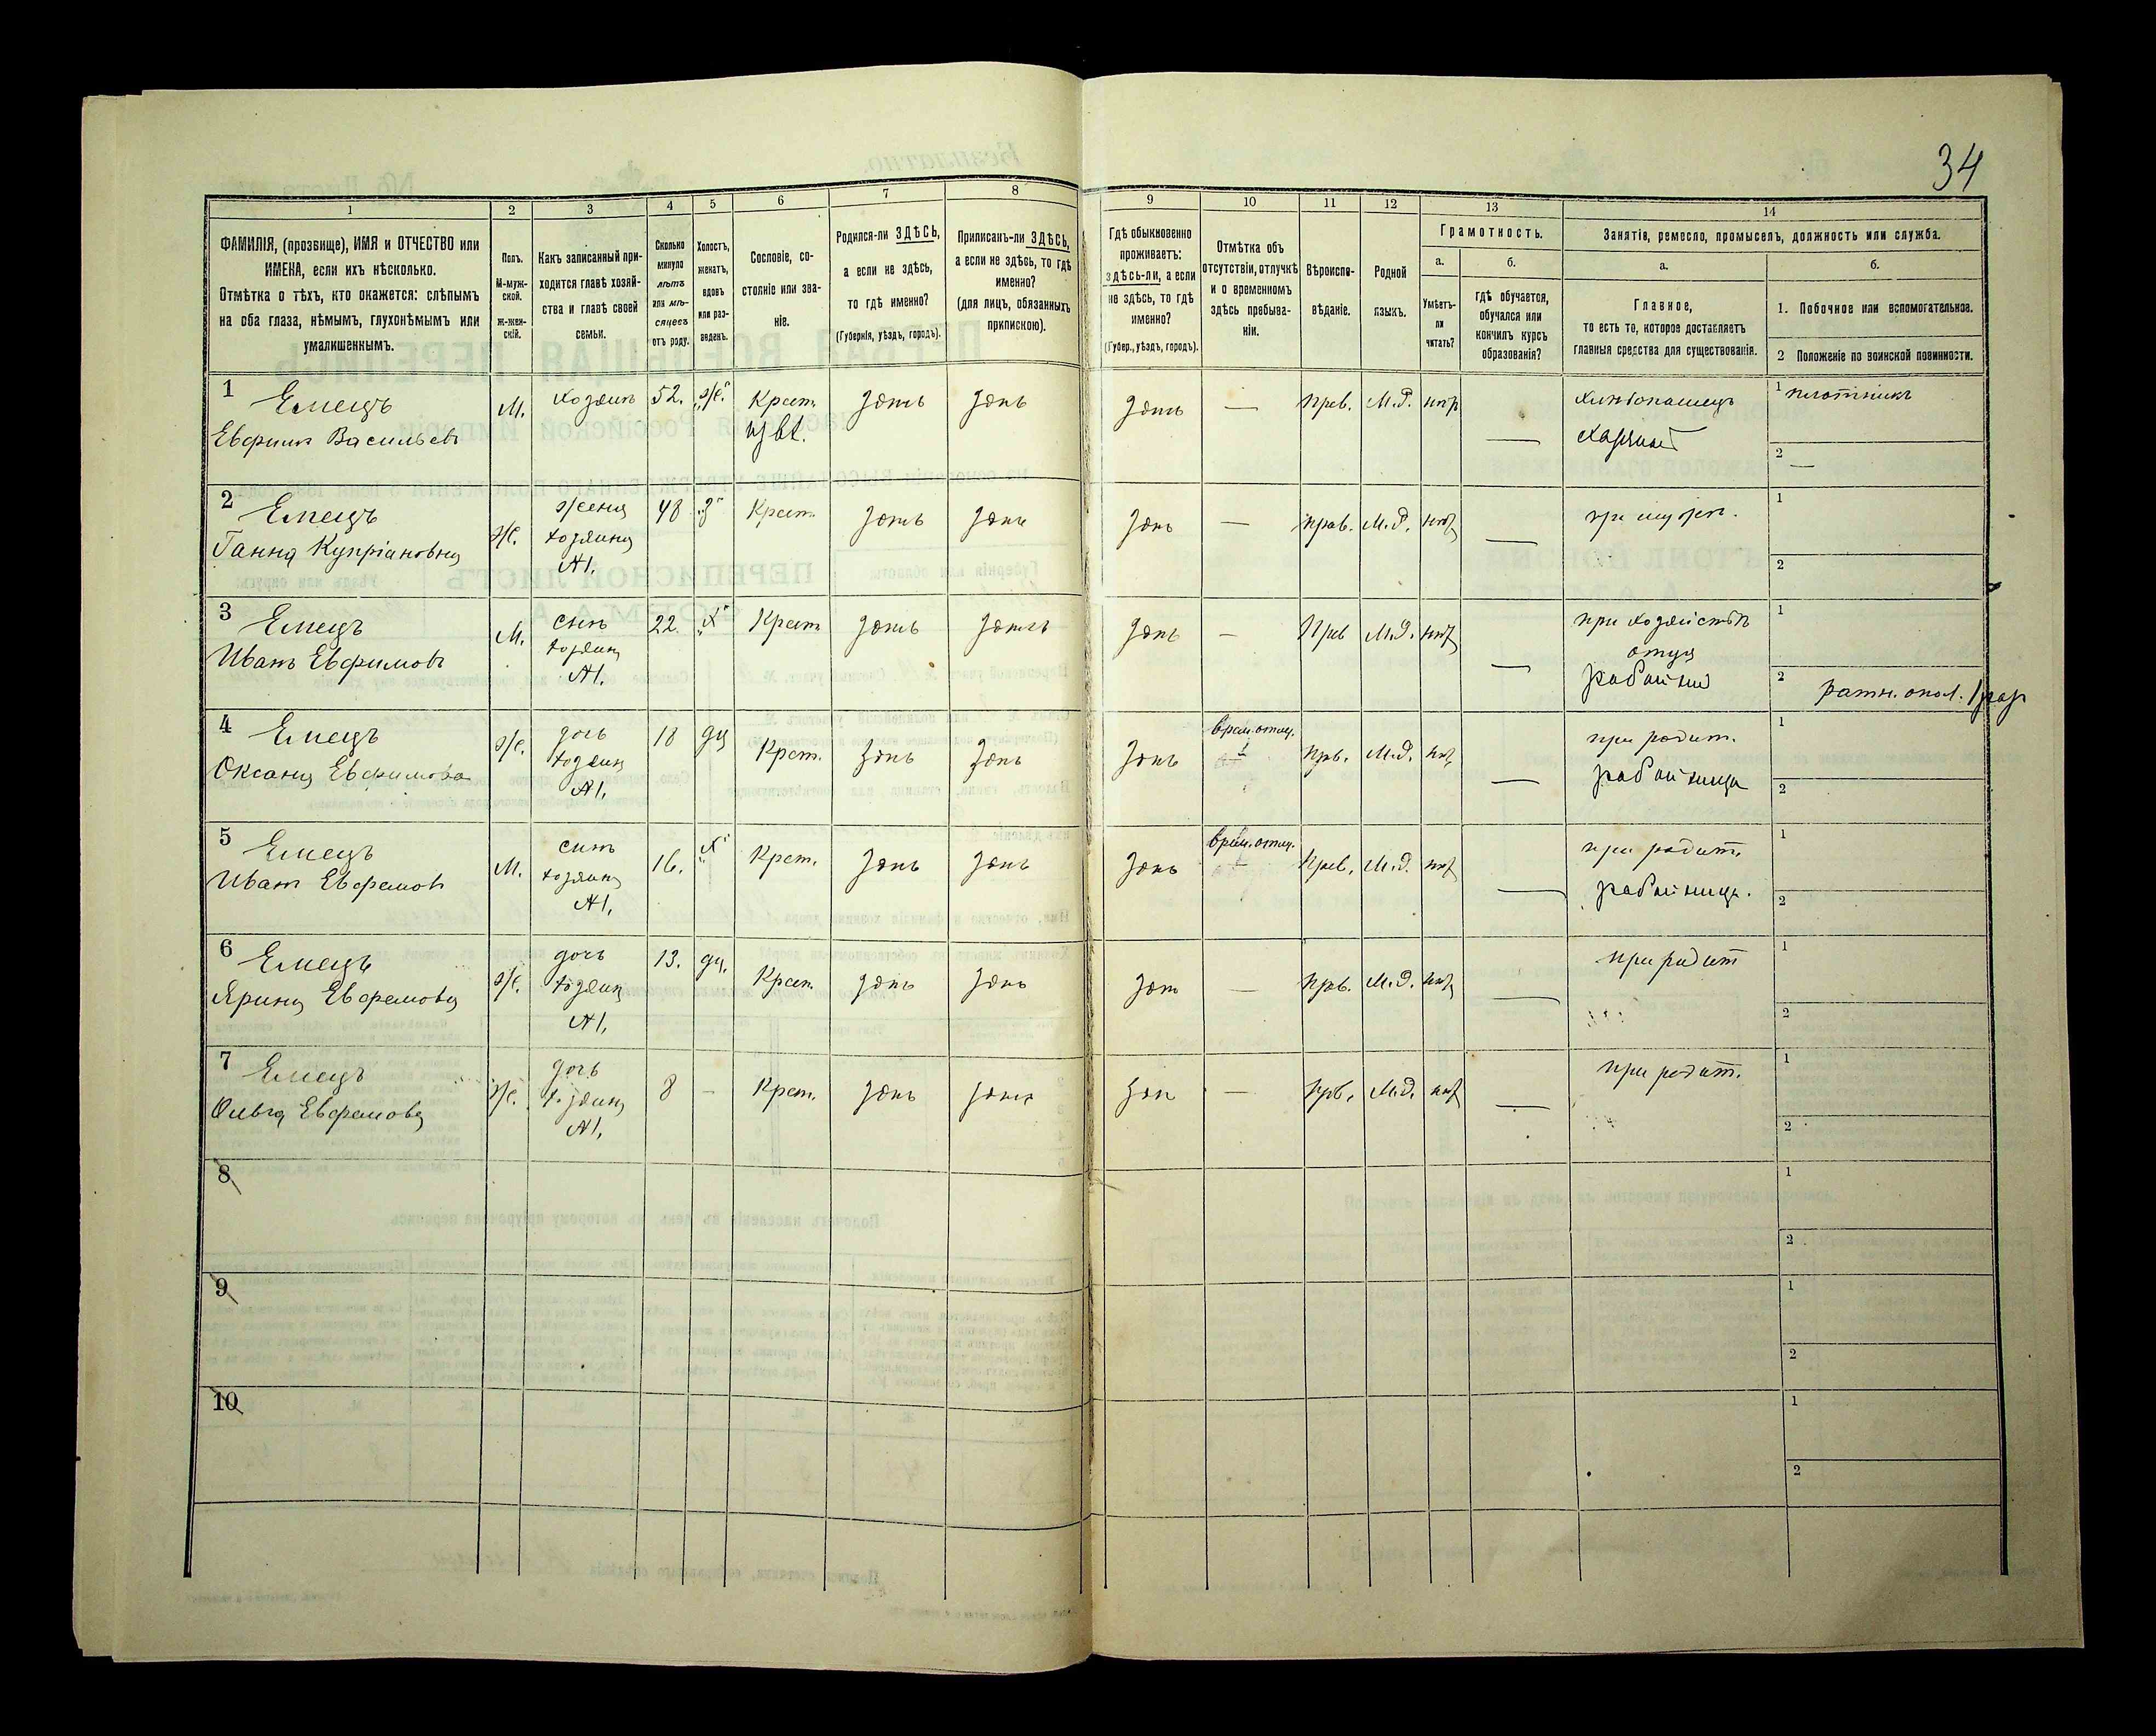 34
1
2
3
4
5
6
7
8
9
10
11
12
13
14
ФАМИЛІЯ, (прозвище), ИМЯ и ОТЧЕСТВО или
ИМЕНА, если ихъ нѣсколько.
Отмѣтка о тѣхъ, кто окажется: слѣпымъ
на оба глаза, нѣмымъ, глухонѣмымъ или
умалишеннымъ.
Полъ.
М-муж-
ской.
Ж-жен-
скій.
Какъ записанный при-
ходится главѣ хозяй-
ства и главѣ своей
семьи.
Сколько
минуло
лѣтъ
или мѣ-
сяцевъ
отъ роду.
Холостъ,
женатъ,
вдовъ
или раз-
веденъ.
Сословіе, со-
стояніе или зва-
ніе.
Родился-ли ЗДѢСЬ,
а если не здѣсь,
то гдѣ именно?
(Губернія, уѣздъ, городъ).
Приписанъ-ли ЗДѢСЬ,
а если не здѣсь, то гдѣ
именно?
(для лицъ, обязанныхъ
припискою).
Гдѣ обыкновенно
проживаетъ:
здѣсь-ли, а если
не здѣсь, то гдѣ
именно?
(Губер., уѣздъ, городъ).
Отмѣтка объ
отсутствіи, отлучкѣ
и о временномъ
здѣсь пребыва-
ніи.
Вѣроиспо-
вѣданіе.
Родной
языкъ.
Грамотность.
а.
Умѣетъ-
ли
читать?
б.
гдѣ обучается,
обучался или
кончилъ курсъ
образованія?
Занятія, ремесло, промыселъ, должность или служба.
а.
Главное,
то есть то, которое доставляетъ
главныя средства для существованія.
б.
1. Побочное или вспомогательное.
2 Положеніе по воинской повинности.
1
Емецъ
Евфимъ Васильевъ
М.
хозяинъ
52.
ж.
Крест.
здѣсь
здѣсь
здѣсь
—
Прав.
М.Р.
нѣтъ
—
хлѣбопашецъ
хозяинъ
1 плотникъ
2 —
2
Емецъ
Ганна Купріановна
ж.
жена
хозяина
№1.
48
з
Крест.
здѣсь
здѣсь
здѣсь
—
прав.
М.Р.
нѣтъ
—
при мужѣ.
1
2
3
Емецъ
Иванъ Евфимовъ
М.
сынъ
хозяина
№1.
22.
х
Крест
здѣсь
здѣсь
здѣсь
—
Прав
М.Р.
нѣтъ
—
при хозяйствѣ
отца
работникъ
1
2 ратн. опол. 1 раз
4
Емецъ
Оксана Евфимова
ж.
дочь
хозяина
№1.
18
дц
Крест.
здѣсь
здѣсь
здѣсь
врем. отлуч.
прв.
М.Р.
нѣтъ
—
при родит.
работница
1
2
5
Емецъ
Иванъ Евфимовъ
М.
сынъ
хозяина
№1.
16.
х
Крест.
здѣсь
здѣсь
здѣсь
врем. отлуч.
Прав.
М.Р.
нѣтъ
—
при родит.
работница.
1
2
6
Емецъ
Ярина Евфимова
ж.
дочь
хозяина
№1.
13.
дц.
Крест.
здѣсь
здѣсь
здѣсь
—
прав.
М.Р.
нѣтъ
—
при родит
1
2
7
Емецъ
Ольга Евфимова
ж.
дочь
хозяина
№1.
8
–
Крест.
здѣсь
здѣсь
здѣсь
—
прв.
М.Р.
нѣтъ
—
при родит.
1
2
8
1
2
9
1
2
10
1
2